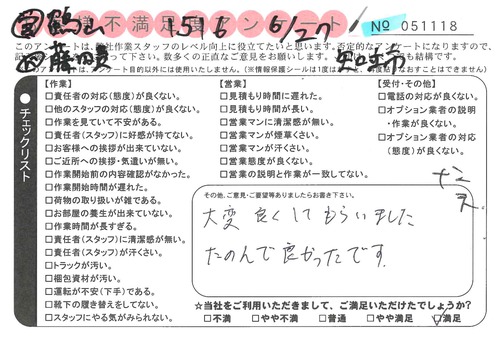 営 鶴山 1516 6/27
お客様不満足度アンケート No 051118
作 藤田 知多市
このアンケートは、弊社作業スタッフのレベル向上に役立てたいと思います。否定的なアンケートになりますので、
チェックリスト
【作業】
□責任者の対応(態度)が良くない。
□他のスタッフの対応(態度)が良くない。
□作業を見ていて不安がある。
□責任者(スタッフ)に好感が持てない。
□お客様への挨拶が出来ていない。
□ご近所への挨拶・気遣いが無い。
□作業開始前の内容確認がなかった。
□作業開始時間が遅れた。
□荷物の取り扱いが雑である。
□お部屋の養生が出来ていない。
□作業時間が長すぎる。
□責任者(スタッフ)に清潔感が無い。
□責任者(スタッフ)が汗くさい。
□トラックが汚い。
□梱包資材が汚い。
□運転が不安(下手)である。
□靴下の履き替えをしてない。
□スタッフにやる気がみられない。
【営業】
□見積もり時間に遅れた。
□見積もり時間が長い。
□営業マンに清潔感が無い。
□営業マンが煙草くさい。
□営業マンが汗くさい。
□営業態度が良くない。
□営業の説明と作業が一致してない。
【受付・その他】
□電話の対応が良くない。
□オプション業者の説明
・作業が良くない。
□オプション業者の対応
(態度)が良くない。
その他、ご意見・ご要望等ありましたらお書き下さい。
大変良くしてもらいました
たのんで良かったです。
☆当社をご利用いただきまして、ご満足いただけたでしょうか?
□不満 □やや不満 □普通 □やや満足 □満足